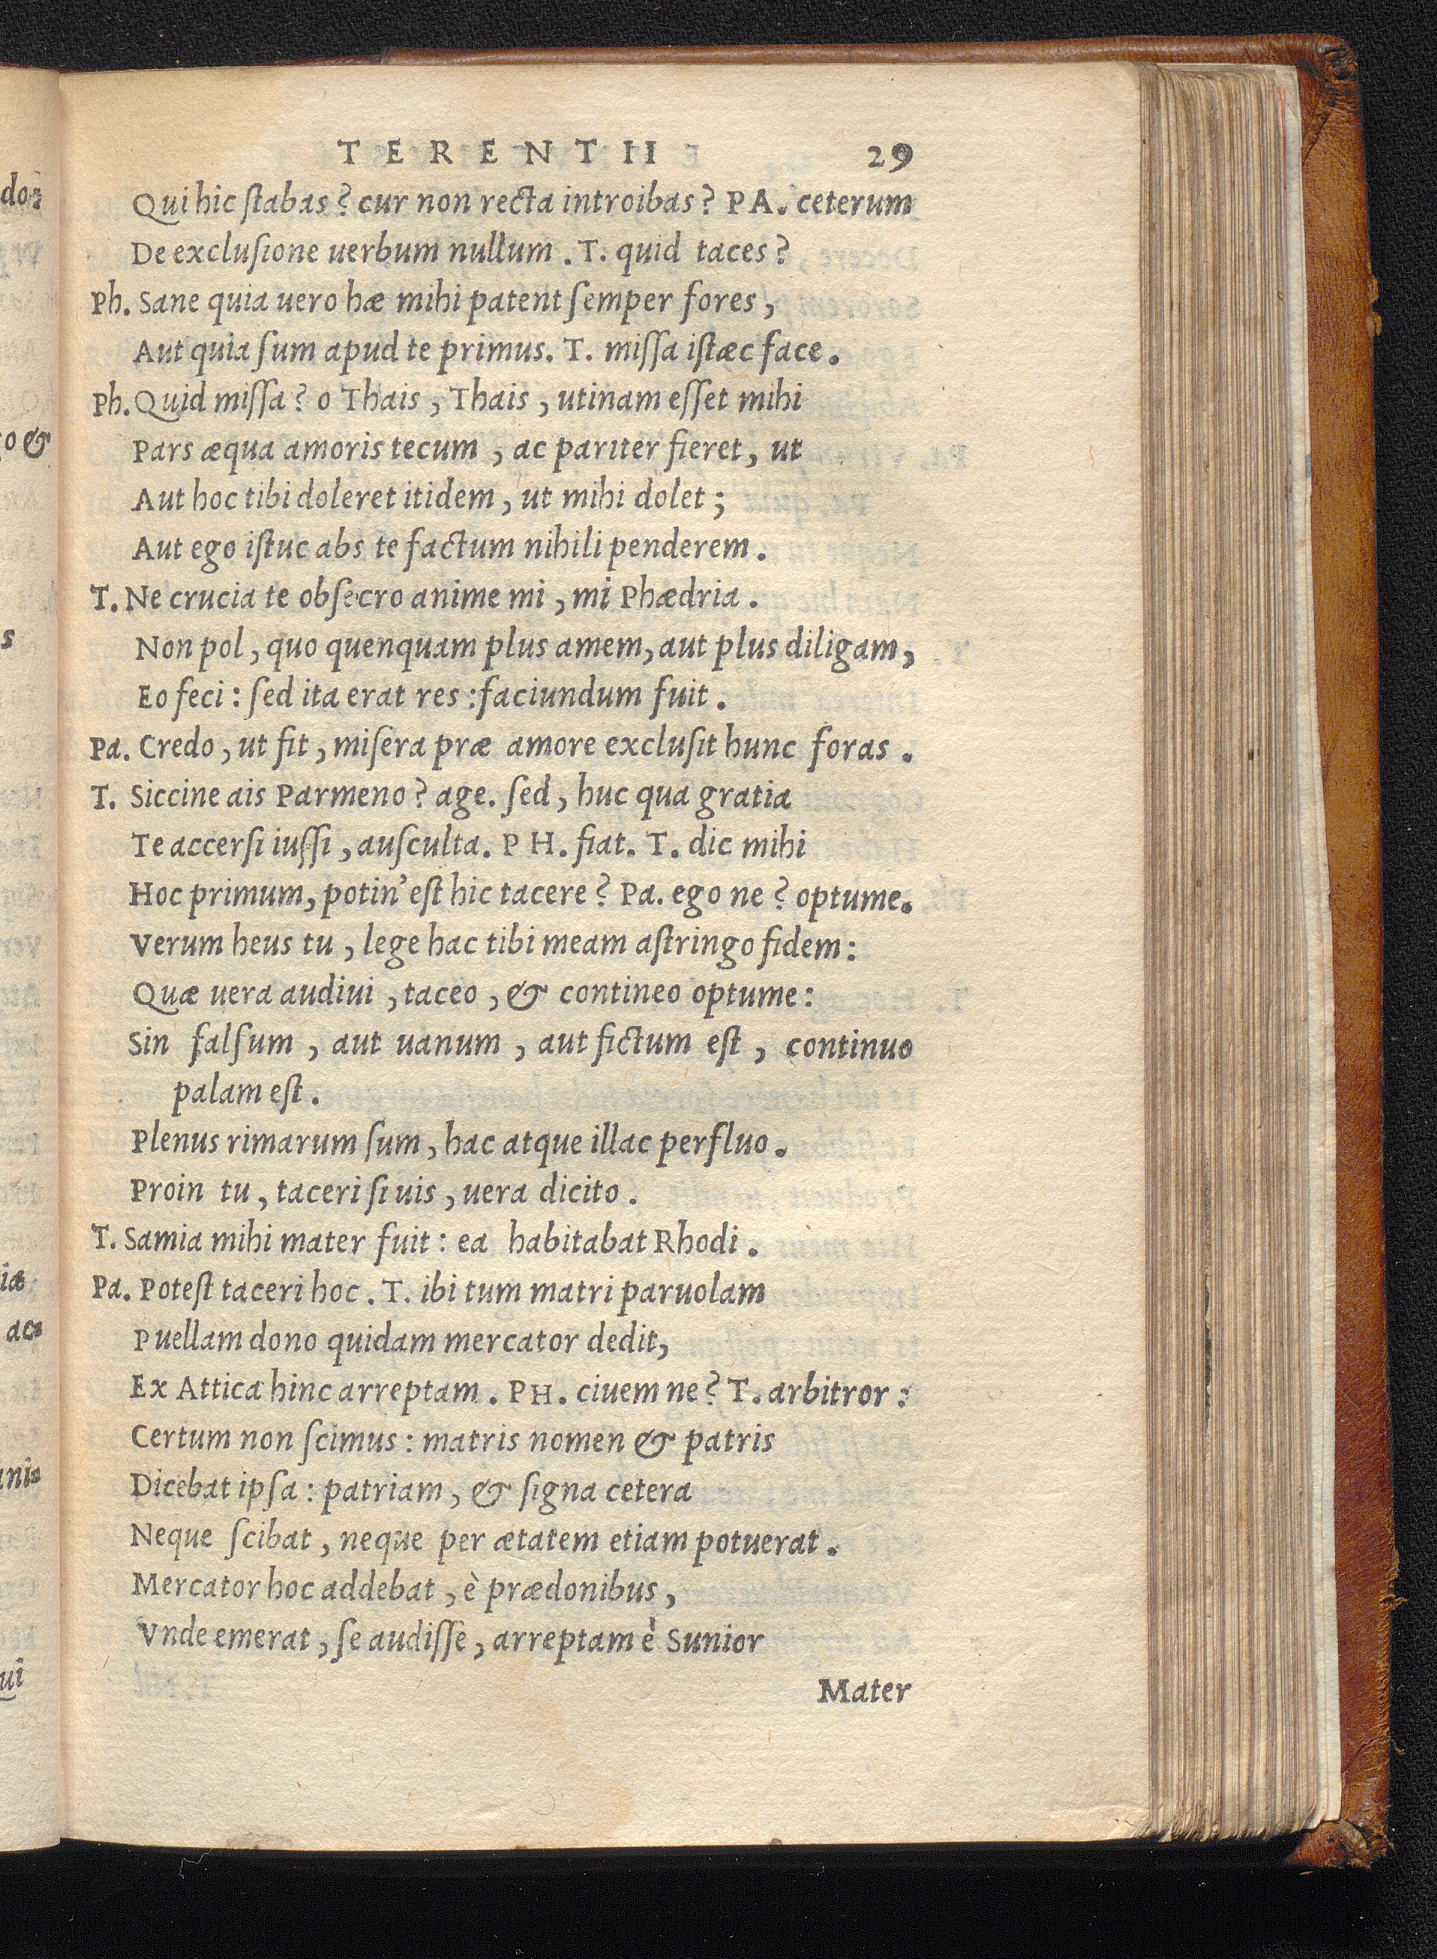 TERENTII 29
Qui hic ſtabas? cur non recta introibas? PA. ceterum
De excluſione uerbum nullum. T. quid taces?
Ph. Sane quia uero hæ mihi patent ſemper fores,
Aut quia ſum apud te primus. T. miſſa iſtæc face.
Ph. Quid miſſa? o Thais, Thais, utinam eſſet mihi
Pars æqua amoris tecum, ac pariter fieret, ut
Aut hoc tibi doleret itidem, ut mihi dolet;
Aut ego iſtuc abs te factum nihili penderem.
T. Ne crucia te obſecro anime mi, mi Phædria.
Non pol, quo quenquam plus amem, aut plus diligam,
Eo feci: ſed ita erat res: faciundum fuit.
Pa. Credo, ut fit, miſera præ amore excluſit hunc foras.
T. Siccine ais Parmeno? age. ſed, huc qua gratia
Te accerſi iuſſi, auſculta. PH. fiat. T. dic mihi
Hoc primum, potin' eſt hic tacere? Pa. ego ne? optume.
Verum heus tu, lege hac tibi meam aſtringo fidem:
Quæ uera audiui, taceo, & contineo optume:
Sin falſum, aut uanum, aut fictum eſt, continuo
palam eſt.
Plenus rimarum ſum, hac atque illac perfluo.
Proin tu, taceri ſi uis, uera dicito.
T. Samia mihi mater fuit: ea habitabat Rhodi.
Pa. Poteſt taceri hoc. T. ibi tum matri paruolam
Puellam dono quidam mercator dedit,
Ex Attica hinc arreptam. PH. ciuem ne? T. arbitror:
Certum non ſcimus: matris nomen & patris
Dicebat ipſa: patriam, & ſigna cetera
Neque ſcibat, neque per ætatem etiam potuerat.
Mercator hoc addebat, è prædonibus,
Vnde emerat, ſe audiſſe, arreptam è Sunior
Mater